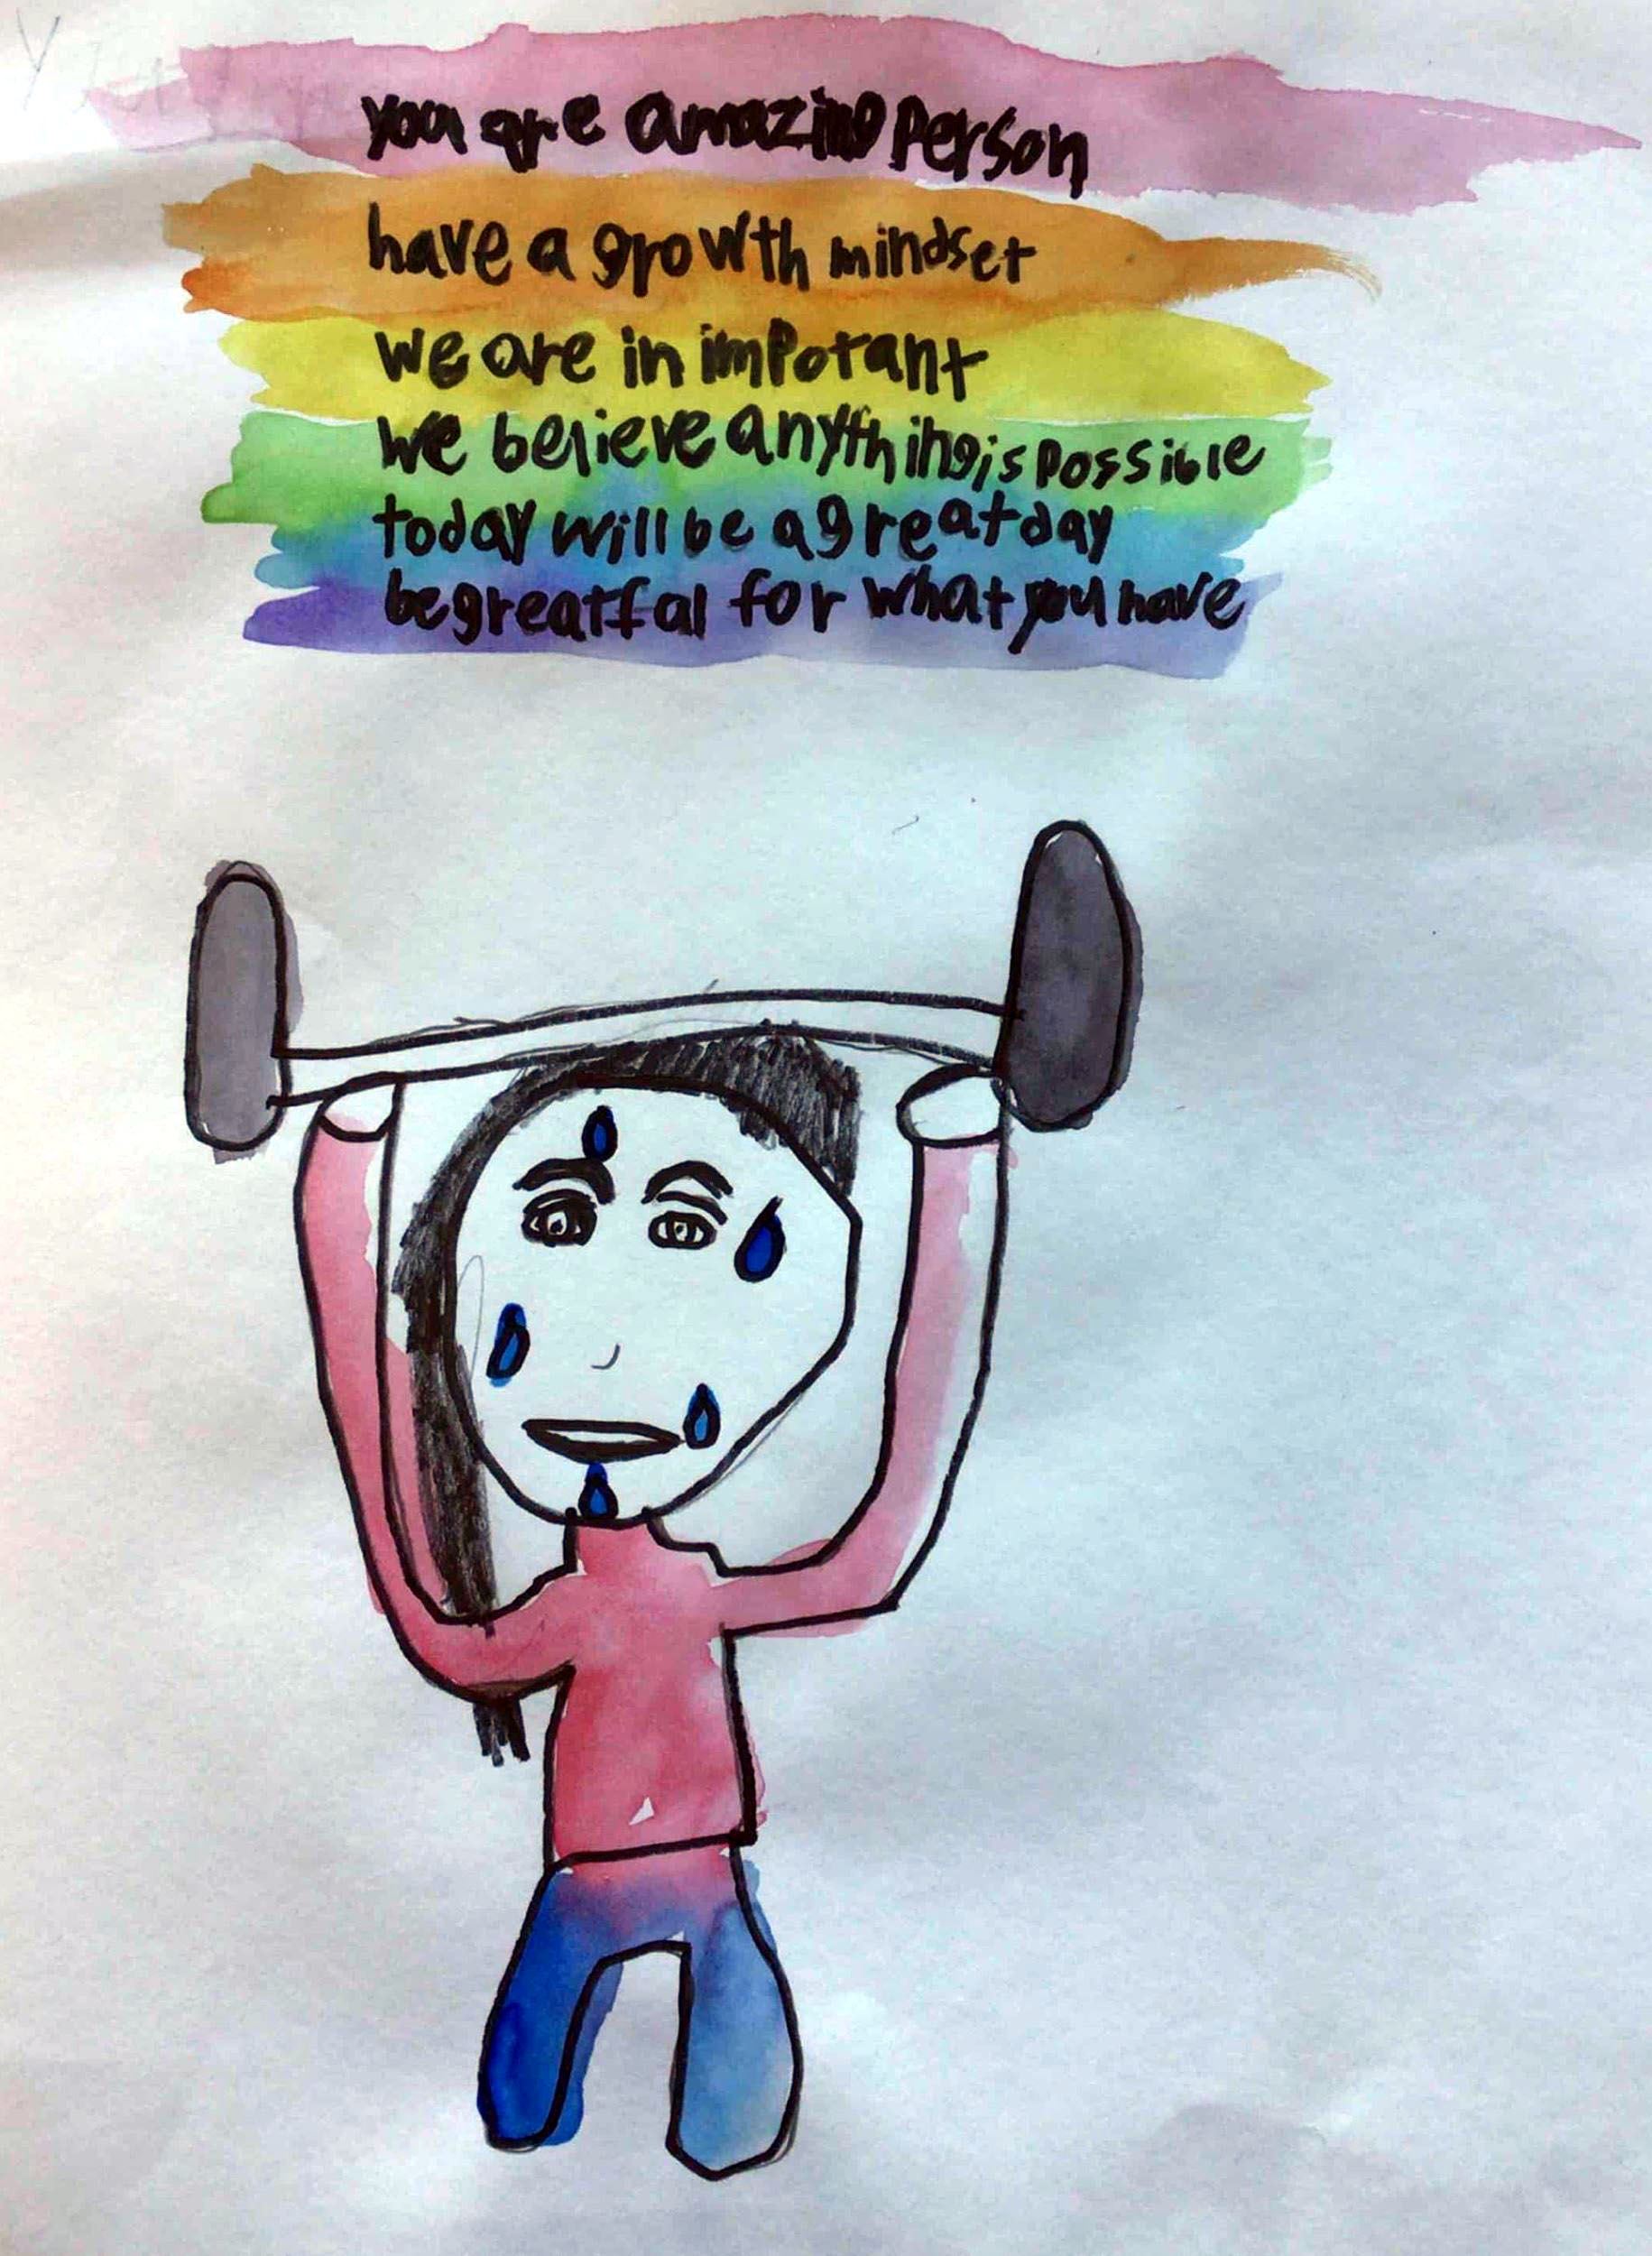 you are amazing person
have a growth mindset
we are in impotant
we believe anything is possible
today will be a great day
be greatfal for what you have